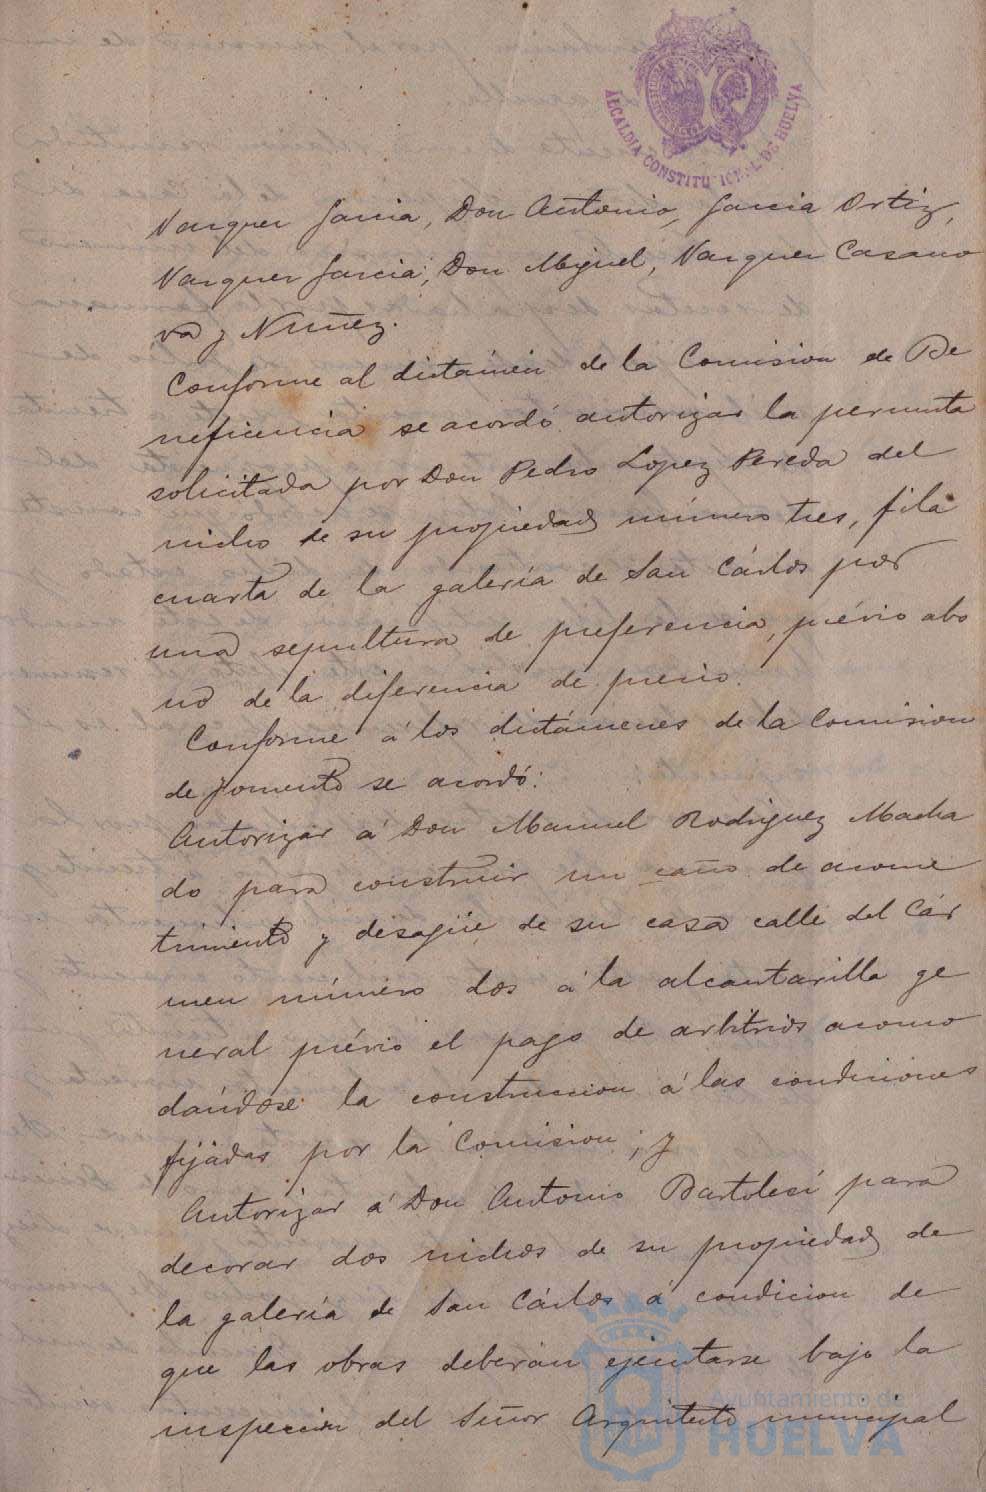 ALCALDIA CONSTITUCIONAL DE HUELVA
Vazquez Garcia, Don Antonio, Garcia Ortiz,
Vazquez Garcia, Don Miguel, Vazquez Casano
va y Nuñez.
Conforme al dictámen de la Comision de Be
neficencia se acordó autorizar la permuta
solicitada por Don Pedro Lopez Pereda del
nicho de su propiedad número tres, fila
cuarta de la galería de San Cárlos por
una sepultura de preferencia, prévio abo
no de la diferencia de precio.
Conforme á los dictámenes de la Comision
de Fomento se acordó:
Autorizar á Don Manuel Rodriguez Macha
do para construir un caño de acome
timiento y desagüe de su casa calle del Cár
men número dos á la alcantarilla ge
neral prévio el pago de arbitrios acomo
dándose la construccion á las condiciones
fijadas por la Comision; y
Autorizar á Don Antonio Bartolesí para
decorar dos nichos de su propiedad de
la galería de San Cárlos á condicion de
que las obras deberán ejecutarse bajo la
inspeccion del Señor Arquitecto municipal
Ayuntamiento de
HUELVA